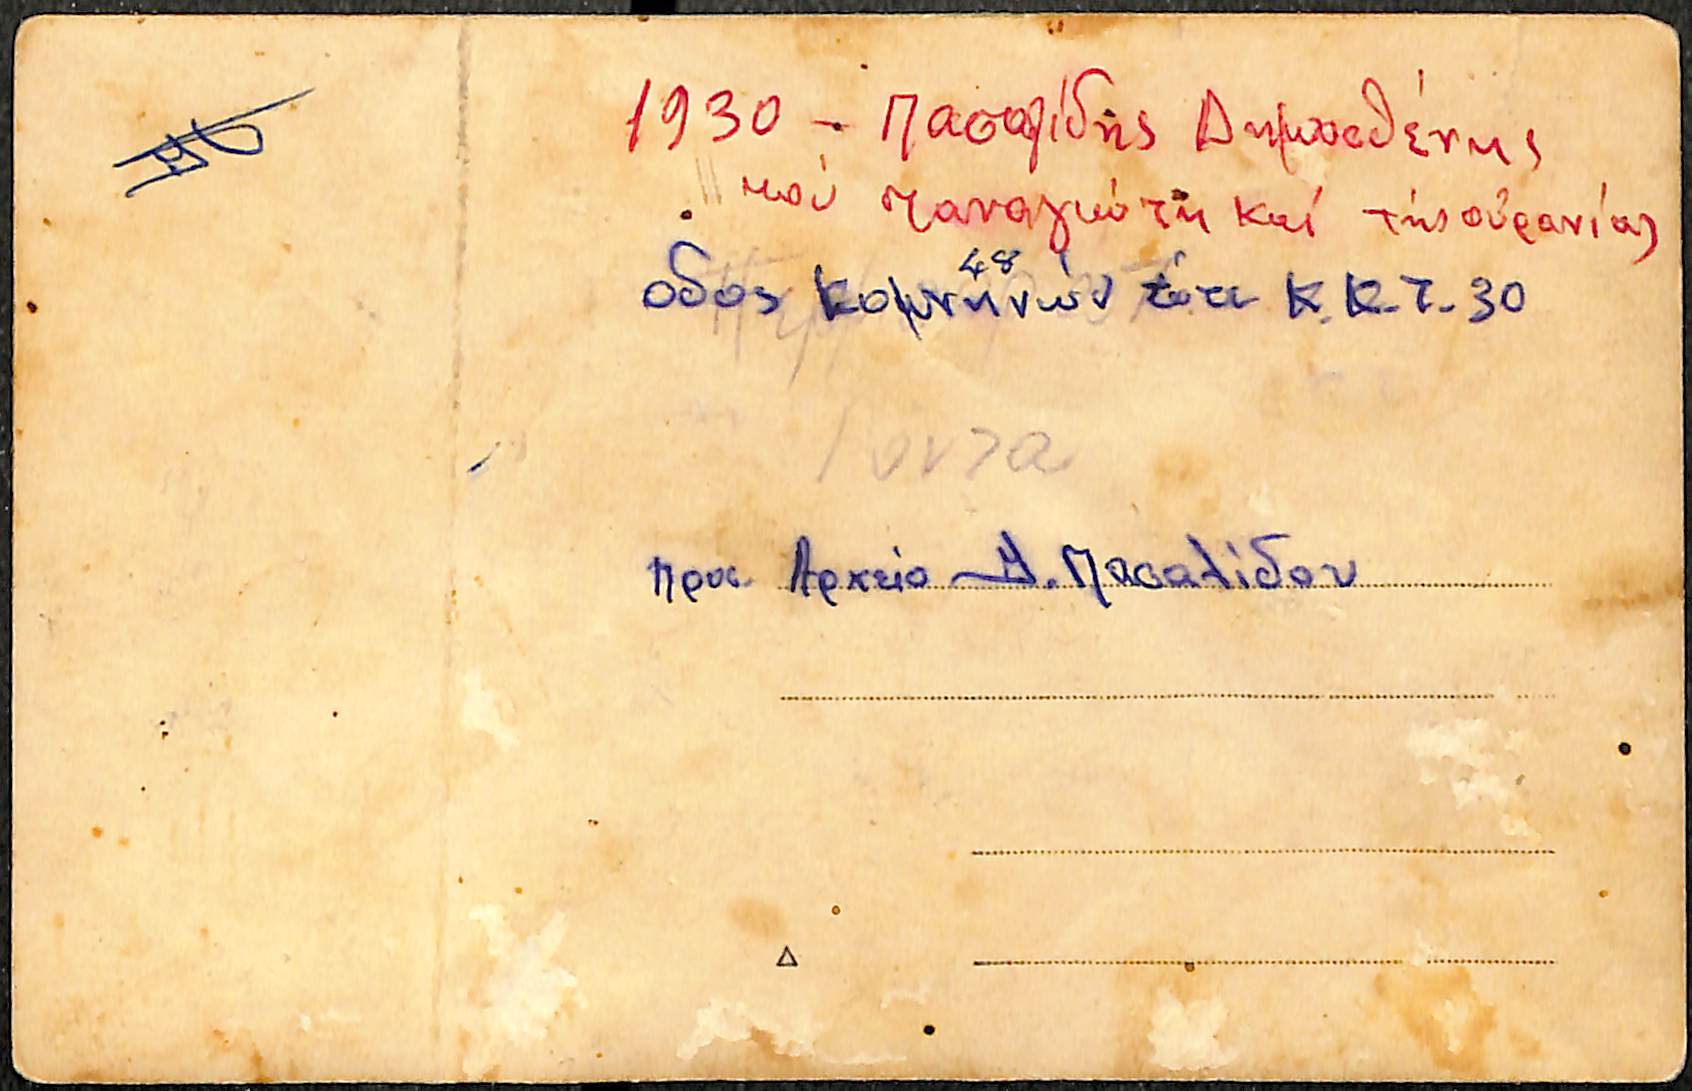 1930 - Πασαλίδης Δημοσθένης
τού Παναγιώτη καί τής ούρανίας
48
οδος Κομνηνών τότε Κ.Κ.Τ. 30
Γουλα
προς Αρχείο Δ. Πασαλίδου
Δ